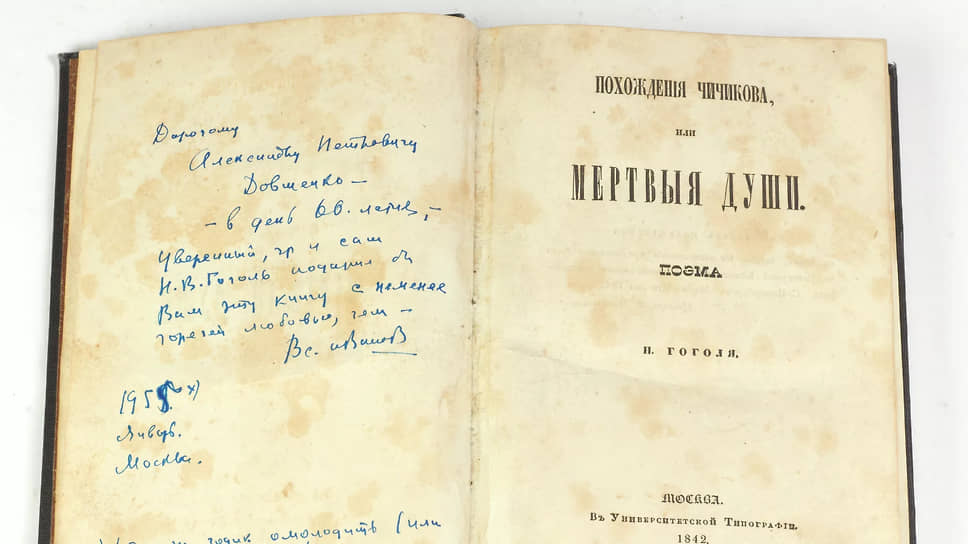 Дорогому
Александру Петровичу
Довженко —
— в день 60-летия, —
Уверенный, чт и сам
Н.В. Гоголь подарил бы
Вам эту книгу с неменее
горячей любовью, чем —
Вс. Иванов
195 х)
Январь.
Москва.
годик омолодить (или
ПОХОЖДЕНІЯ ЧИЧИКОВА,
ИЛИ
МЕРТВЫЯ ДУШИ.
ПОЭМА
Н. ГОГОЛЯ.
МОСКВА.
Въ Университетской Типографіи.
1842.